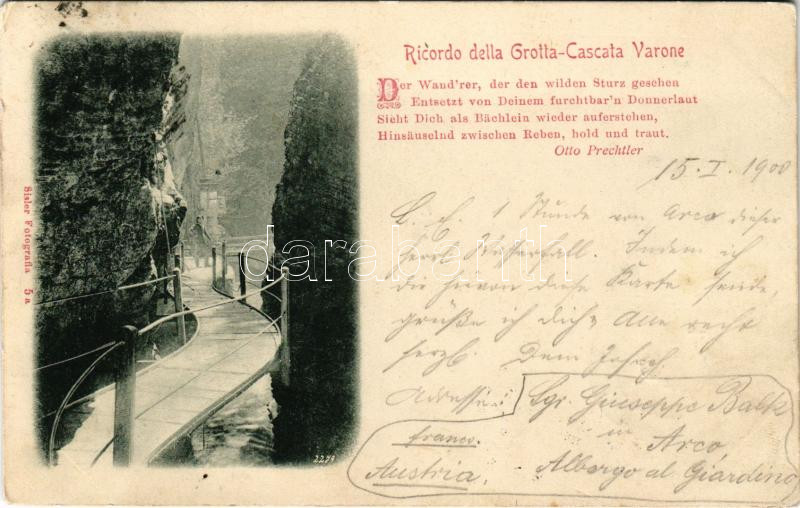 Ricordo della Grotta-Cascata Varone
Der Wand'rer, der den wilden Sturz gesehen
Entsetzt von Deinem furchtbar'n Donnerlaut
Sieht Dich als Bächlein wieder auferstehen,
Hinsäuselnd zwischen Reben, hold und traut.
Otto Prechtler
15. I. 1900
L. E. 1 Stunde von Arco dieser
Wasserfall. Indem ich
dir hievon diese Karte sende,
grüße ich dich & Alle recht
herzl. Dein Joseph
Adresse: Sgr. Giuseppe
franco. in Arco
Austria. Albergo al Giardino
Sisler Fotografia 5a
2279
darabanth